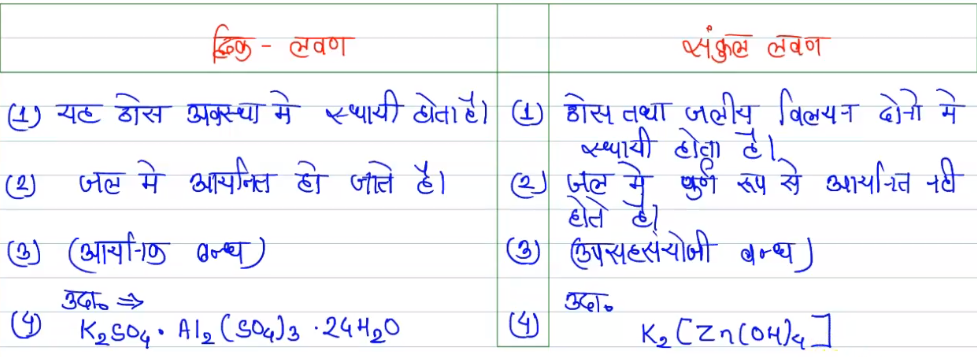 द्विक - लवण
संकुल लवण
(1) यह ठोस अवस्था मे स्थायी होता है।
(1) ठोस तथा जलीय विलयन दोनो मे
स्थायी होता है।
(2) जल मे आयनित हो जाते है।
(2) जल मे पुर्ण रूप से आयनित नही
होते है।
(3) (आयनिक बन्ध)
(3) (उपसहसंयोजी बन्ध)
उदा. ⇒
(4) K₂SO₄ · Al₂(SO₄)₃ · 24H₂O
उदा.
(4) K₂[Zn(OH)₄]